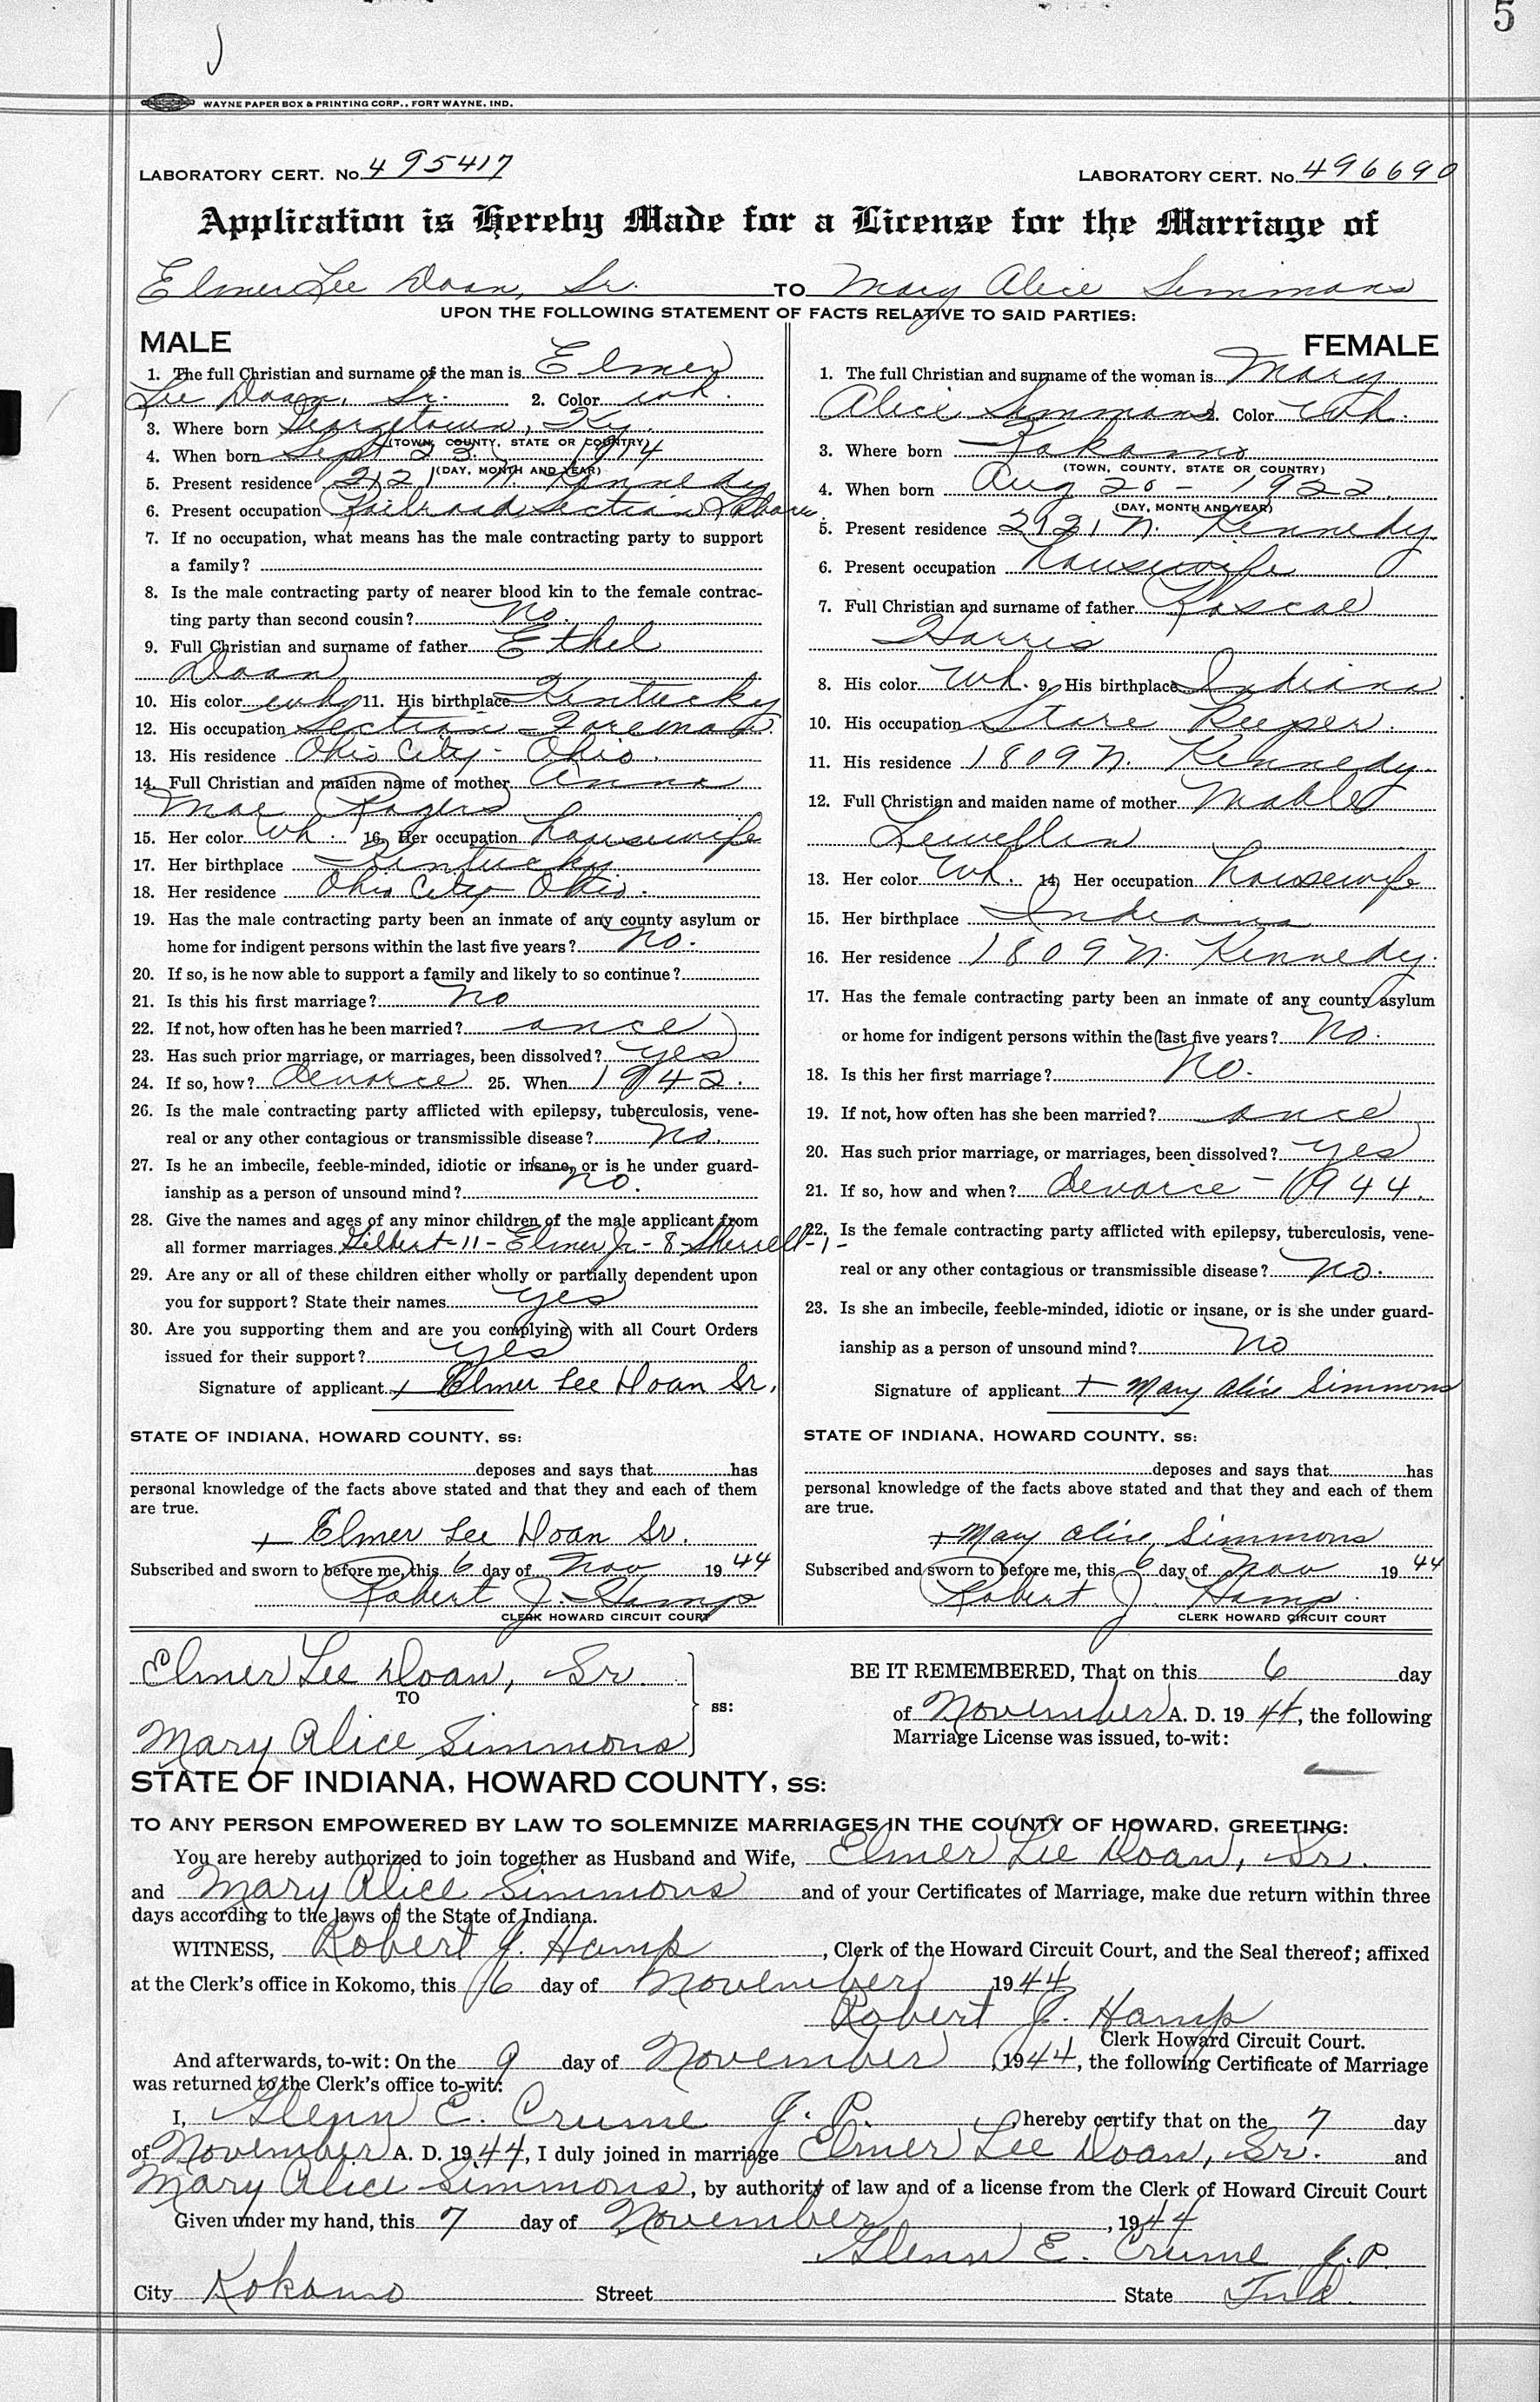 5
WAYNE PAPER BOX & PRINTING CORP., FORT WAYNE, IND.
LABORATORY CERT. No. 495417
LABORATORY CERT. No. 496690
Application is Hereby Made for a License for the Marriage of
Elmer Lee Doan, Sr. TO Mary Alice Simmons
UPON THE FOLLOWING STATEMENT OF FACTS RELATIVE TO SAID PARTIES:
MALE
1. The full Christian and surname of the man is Elmer
Lee Doan, Sr. 2. Color wh.
3. Where born Georgetown, Ky.
(TOWN, COUNTY, STATE OR COUNTRY)
4. When born Sept 23 1914
(DAY, MONTH AND YEAR)
5. Present residence 2121 N. Kennedy
6. Present occupation Railroad Section Labore
7. If no occupation, what means has the male contracting party to support
a family?
8. Is the male contracting party of nearer blood kin to the female contrac-
ting party than second cousin? No.
9. Full Christian and surname of father Ethel
Doan
10. His color wh 11. His birthplace Kentucky
12. His occupation Section Foreman
13. His residence Ohio City - Ohio.
14. Full Christian and maiden name of mother Anna
Mae Rogers
15. Her color Wh. 16. Her occupation housewife
17. Her birthplace Kentucky
18. Her residence Ohio City Ohio.
19. Has the male contracting party been an inmate of any county asylum or
home for indigent persons within the last five years? No.
20. If so, is he now able to support a family and likely to so continue?
21. Is this his first marriage? No
22. If not, how often has he been married? once
23. Has such prior marriage, or marriages, been dissolved? yes
24. If so, how? devorce 25. When 1942.
26. Is the male contracting party afflicted with epilepsy, tuberculosis, vene-
real or any other contagious or transmissible disease? No.
27. Is he an imbecile, feeble-minded, idiotic or insane, or is he under guard-
ianship as a person of unsound mind? No.
28. Give the names and ages of any minor children of the male applicant from
all former marriages. Gilbert-11- Elmer Jr-8- Sherrell-1-
29. Are any or all of these children either wholly or partially dependent upon
you for support? State their names yes
30. Are you supporting them and are you complying with all Court Orders
issued for their support? yes
Signature of applicant + Elmer Lee Doan Sr.
STATE OF INDIANA, HOWARD COUNTY, SS:
deposes and says that has
personal knowledge of the facts above stated and that they and each of them
are true.
+ Elmer Lee Doan Sr.
Subscribed and sworn to before me, this 6 day of Nov 1944
Robert J. Hamp
CLERK HOWARD CIRCUIT COURT
FEMALE
1. The full Christian and surname of the woman is Mary
Alice Simmons 2. Color Wh.
3. Where born Kokomo
(TOWN, COUNTY, STATE OR COUNTRY)
4. When born Aug 20 - 1922.
(DAY, MONTH AND YEAR)
5. Present residence 2121 N. Kennedy
6. Present occupation housewife
7. Full Christian and surname of father Roscoe
Harris
8. His color Wh. 9. His birthplace Indiana
10. His occupation Store Keeper.
11. His residence 1809 N. Kennedy
12. Full Christian and maiden name of mother Mable
Lewellin
13. Her color Wh. 14. Her occupation housewife
15. Her birthplace Indiana
16. Her residence 1809 N. Kennedy.
17. Has the female contracting party been an inmate of any county asylum
or home for indigent persons within the last five years? No.
18. Is this her first marriage? No.
19. If not, how often has she been married? once
20. Has such prior marriage, or marriages, been dissolved? yes
21. If so, how and when? devorce - 1944.
22. Is the female contracting party afflicted with epilepsy, tuberculosis, vene-
real or any other contagious or transmissible disease? No.
23. Is she an imbecile, feeble-minded, idiotic or insane, or is she under guard-
ianship as a person of unsound mind? No
Signature of applicant + Mary Alice Simmons
STATE OF INDIANA, HOWARD COUNTY, SS:
deposes and says that has
personal knowledge of the facts above stated and that they and each of them
are true.
+ Mary Alice Simmons
Subscribed and sworn to before me, this 6 day of Nov 1944
Robert J. Hamp.
CLERK HOWARD CIRCUIT COURT
Elmer Lee Doan, Sr.
TO
Mary Alice Simmons
ss:
BE IT REMEMBERED, That on this 6 day
of November A. D. 1944, the following
Marriage License was issued, to-wit:
STATE OF INDIANA, HOWARD COUNTY, SS:
TO ANY PERSON EMPOWERED BY LAW TO SOLEMNIZE MARRIAGES IN THE COUNTY OF HOWARD, GREETING:
You are hereby authorized to join together as Husband and Wife, Elmer Lee Doan, Sr.
and Mary Alice Simmons and of your Certificates of Marriage, make due return within three
days according to the laws of the State of Indiana.
WITNESS, Robert J. Hamp, Clerk of the Howard Circuit Court, and the Seal thereof; affixed
at the Clerk's office in Kokomo, this 6 day of November 1944
Robert J. Hamp
Clerk Howard Circuit Court.
And afterwards, to-wit: On the 9 day of November, 1944, the following Certificate of Marriage
was returned to the Clerk's office to-wit:
I, Glenn E. Crume J. P., hereby certify that on the 7 day
of November A. D. 1944, I duly joined in marriage Elmer Lee Doan, Sr. and
Mary Alice Simmons, by authority of law and of a license from the Clerk of Howard Circuit Court
Given under my hand, this 7 day of November, 1944
Glenn E. Crume J.P.
City Kokomo Street State Ind.